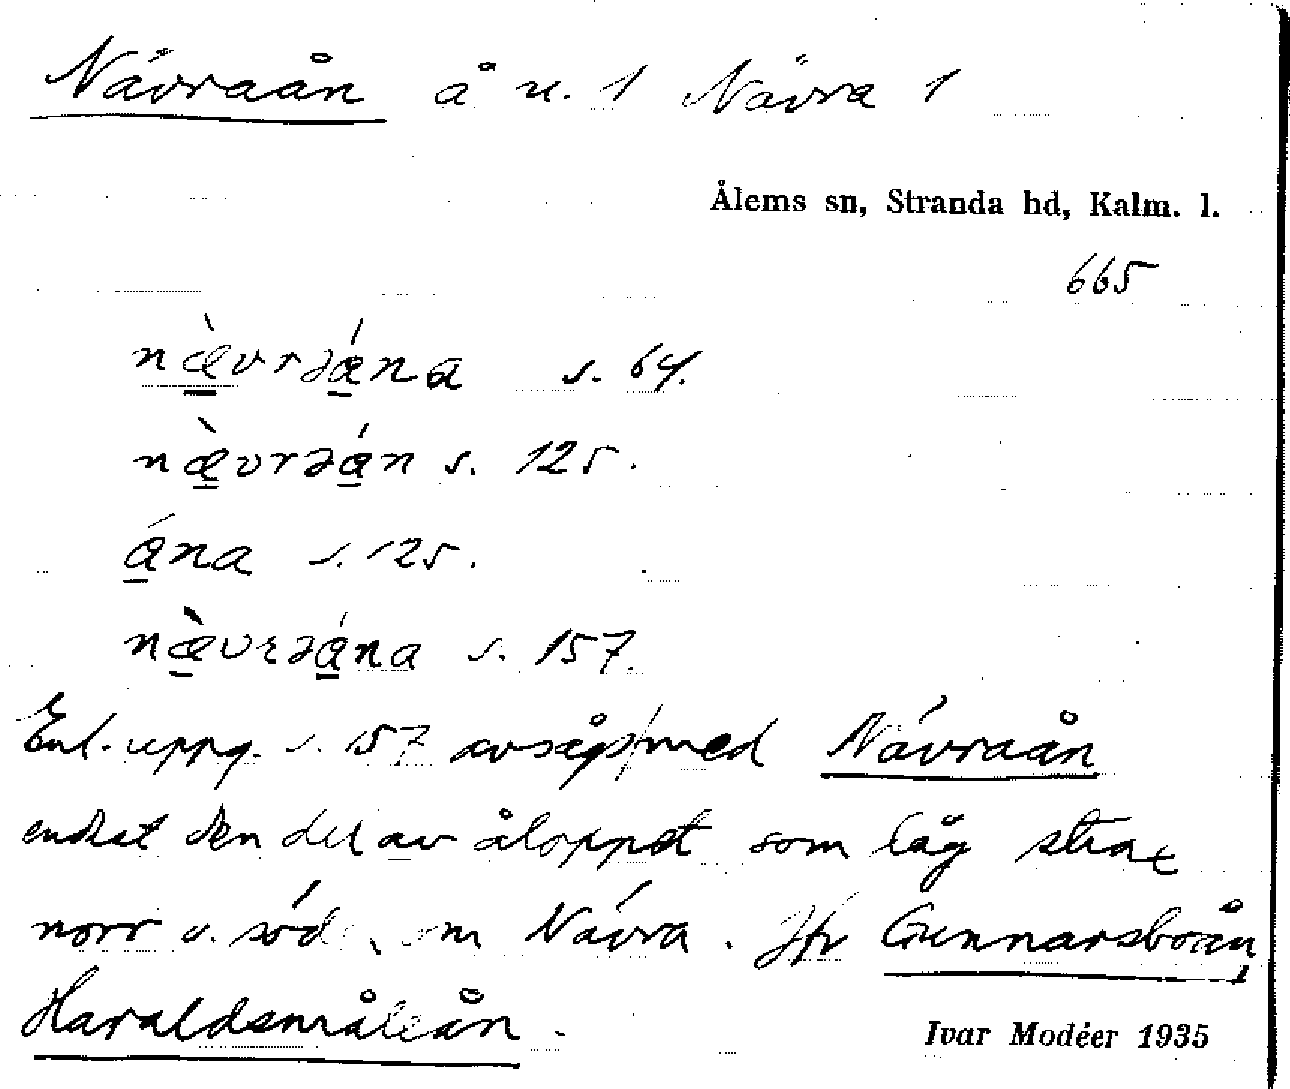 Nävraån å n. 1 Nävra 1
Ålems sn, Stranda hd, Kalm. l.
665
næ̀vrəána s. 64.
næ̀vrəán s. 125.
ána s. 125.
næ̀vrəána s. 157.
Enl. uppg. s. 157 avsågs med Nävraån
endast den del av åloppet som låg strax
norr o. söder om Nävra. Jfr Gunnarsboån,
Haraldsmåleån.
Ivar Modéer 1935